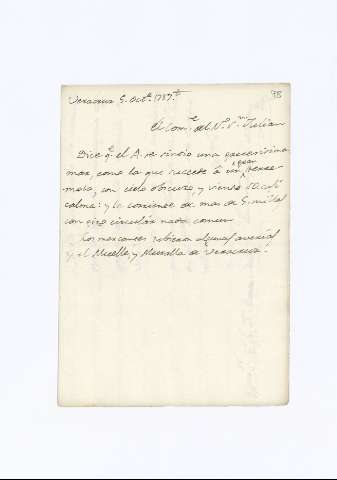 Veracruz 5. Oct.e 1757.
98
El Com.te del N.o S.n Julian
Dice q.e el A. se vinció una gruesisima
mar, como la que sucede á un gran terre
moto, con cielo obscuro, y viento SO. casi
calma: y la corriente de mas de 5. millas
con giro circular nada comun
Los mercantes sufrieron algunas averias
y el Muelle, y Muralla de Veracruz.